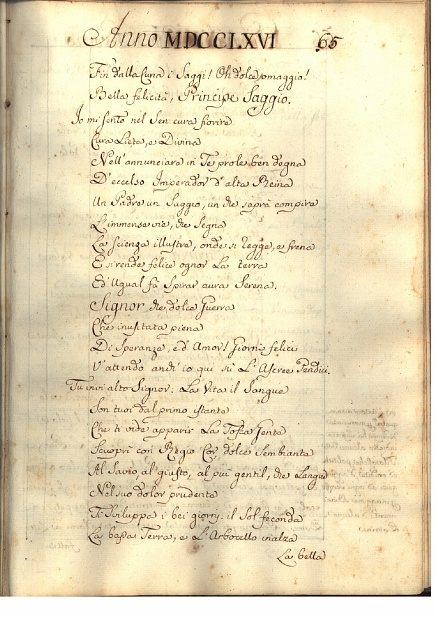 Anno MDCCLXVI 65
Fin dalla Cuna i Saggi! Oh dolce omaggio!
Bella felicità, Principe Saggio.
Io mi sento nel Sen cura fiorire
Cura Lieta, e Divina
Nell'annunciare in Te prole ben degna
D'eccelso Imperador d'alta Reina
Un Padre un Saggio, un che saprà compire
L'immense vie, che Segna
La scienza illustre, onde si regge, e frena
E si rende felice ognor La terra
Ed Ugual fà Spirar aura Serena.
Signor che dolce Guerra
Che inusitata piena
Di Speranze, ed Amor! Giorni felici
V'attendo anch'io qui sù L'Ascree Pendici.
Tu vivi alto Signor. La Vita il Sangue
Son tuoi dal primo istante
Che ti vide apparir La Tosca Gente
Scuopri con Regio Cor dolce Sembiante
Al Savio, al giusto, al più gentil, che Langue
Nel suo dolor prudente
Ti Sviluppa i bei giorni: il Sol feconda
La bassa Terra, e L'Arboscello inalza
La bella